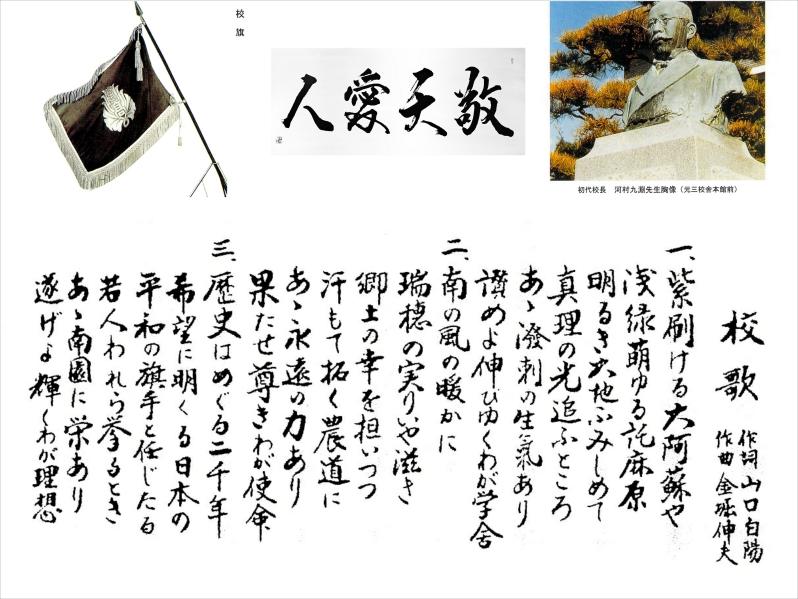 校旗
敬天愛人
初代校長 河村九淵先生胸像（元三校舎本館前）
校歌
作詞 山口白陽
作曲 金堀伸夫
一、紫刷ける大阿蘇や
浅緑萌ゆる託麻原
明るき大地ふみしめて
真理の光追ふところ
あゝ潑刺の生氣あり
讃めよ伸びゆくわが学舎
二、南の風の暖かに
瑞穂の実りいや滋き
郷土の幸を担いつつ
汗もて拓く農道に
あゝ永遠の力あり
果たせ尊きわが使命
三、歴史はめぐる二千年
希望に明くる日本の
平和の旗手と任じたる
若人われら挙るとき
あゝ南國に栄あり
遂げよ輝くわが理想